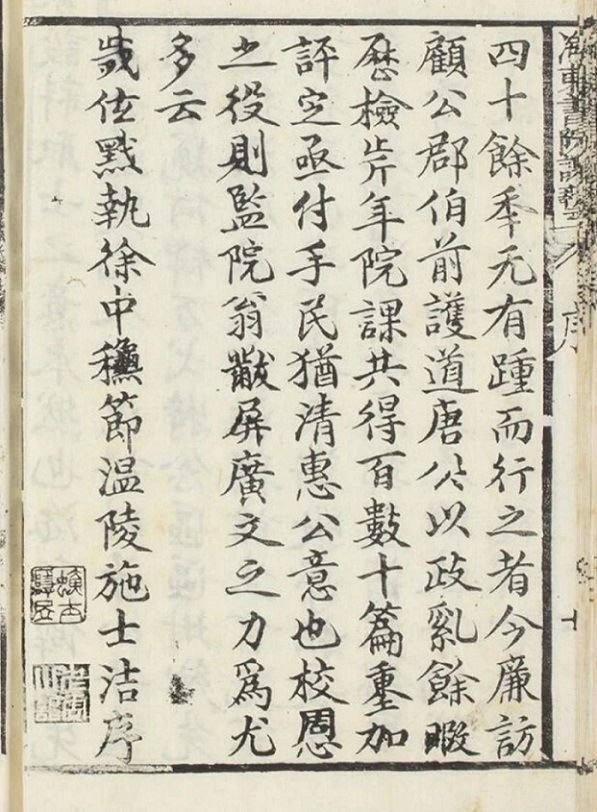 海東書院課藝
序
四十餘秊无有踵而行之者今廉訪
顧公郡伯前護道唐公以政乿餘暇
歷檢年院課共得百數十篇重加
評定亟付手民猶清惠公意也校
之役則監院翁黻屏廣文之力爲尤
多云
歲位黓執徐中龝節温陵施士洁序